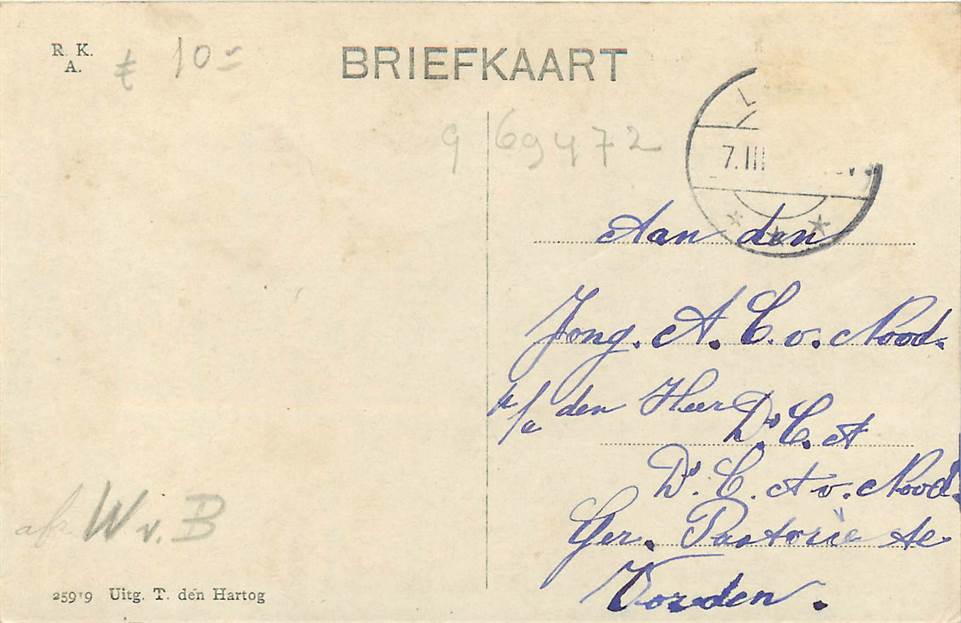 R. K.
A.
10=
BRIEFKAART
9 69472
L
7.III
Aan den
Jong. A. C. v. Nood.
p/a den Heer
Ds. C. A
Ds. C. A v. Nood.
Ger. Pastorie te
Vorden.
W v. B
25919 Uitg. T. den Hartog